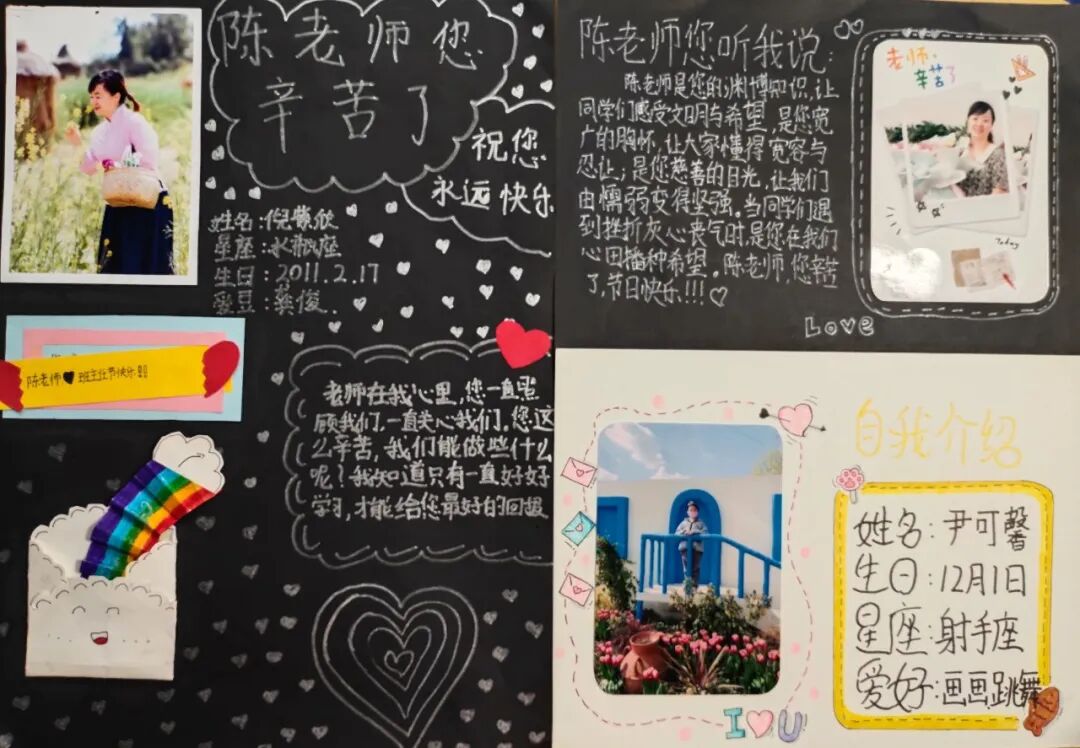 陈老师您
辛苦了
祝您
永远快乐
姓名:倪紫欣
星座:水瓶座
生日:2011.2.17
爱豆:龚俊.
陈老师♥班主任节快乐!!
老师在我心里,您一直照
顾我们,一直关心我们,您这
么辛苦,我们能做些什么
呢?我知道只有一直好好
学习,才能给您最好的回报
陈老师您听我说:
陈老师是您的渊博知识,让
同学们感受文明与希望,是您宽
广的胸怀,让大家懂得宽容与
忍让;是您慈善的目光,让我们
由懦弱变得坚强。当同学们遇
到挫折灰心丧气时,是您在我们
心田播种希望。陈老师,您辛苦
了,节日快乐!!!♡
老师:
辛苦了
Today
Love
自我介绍
姓名:尹可馨
生日:12月1日
星座:射手座
爱好:画画跳舞
I♡U